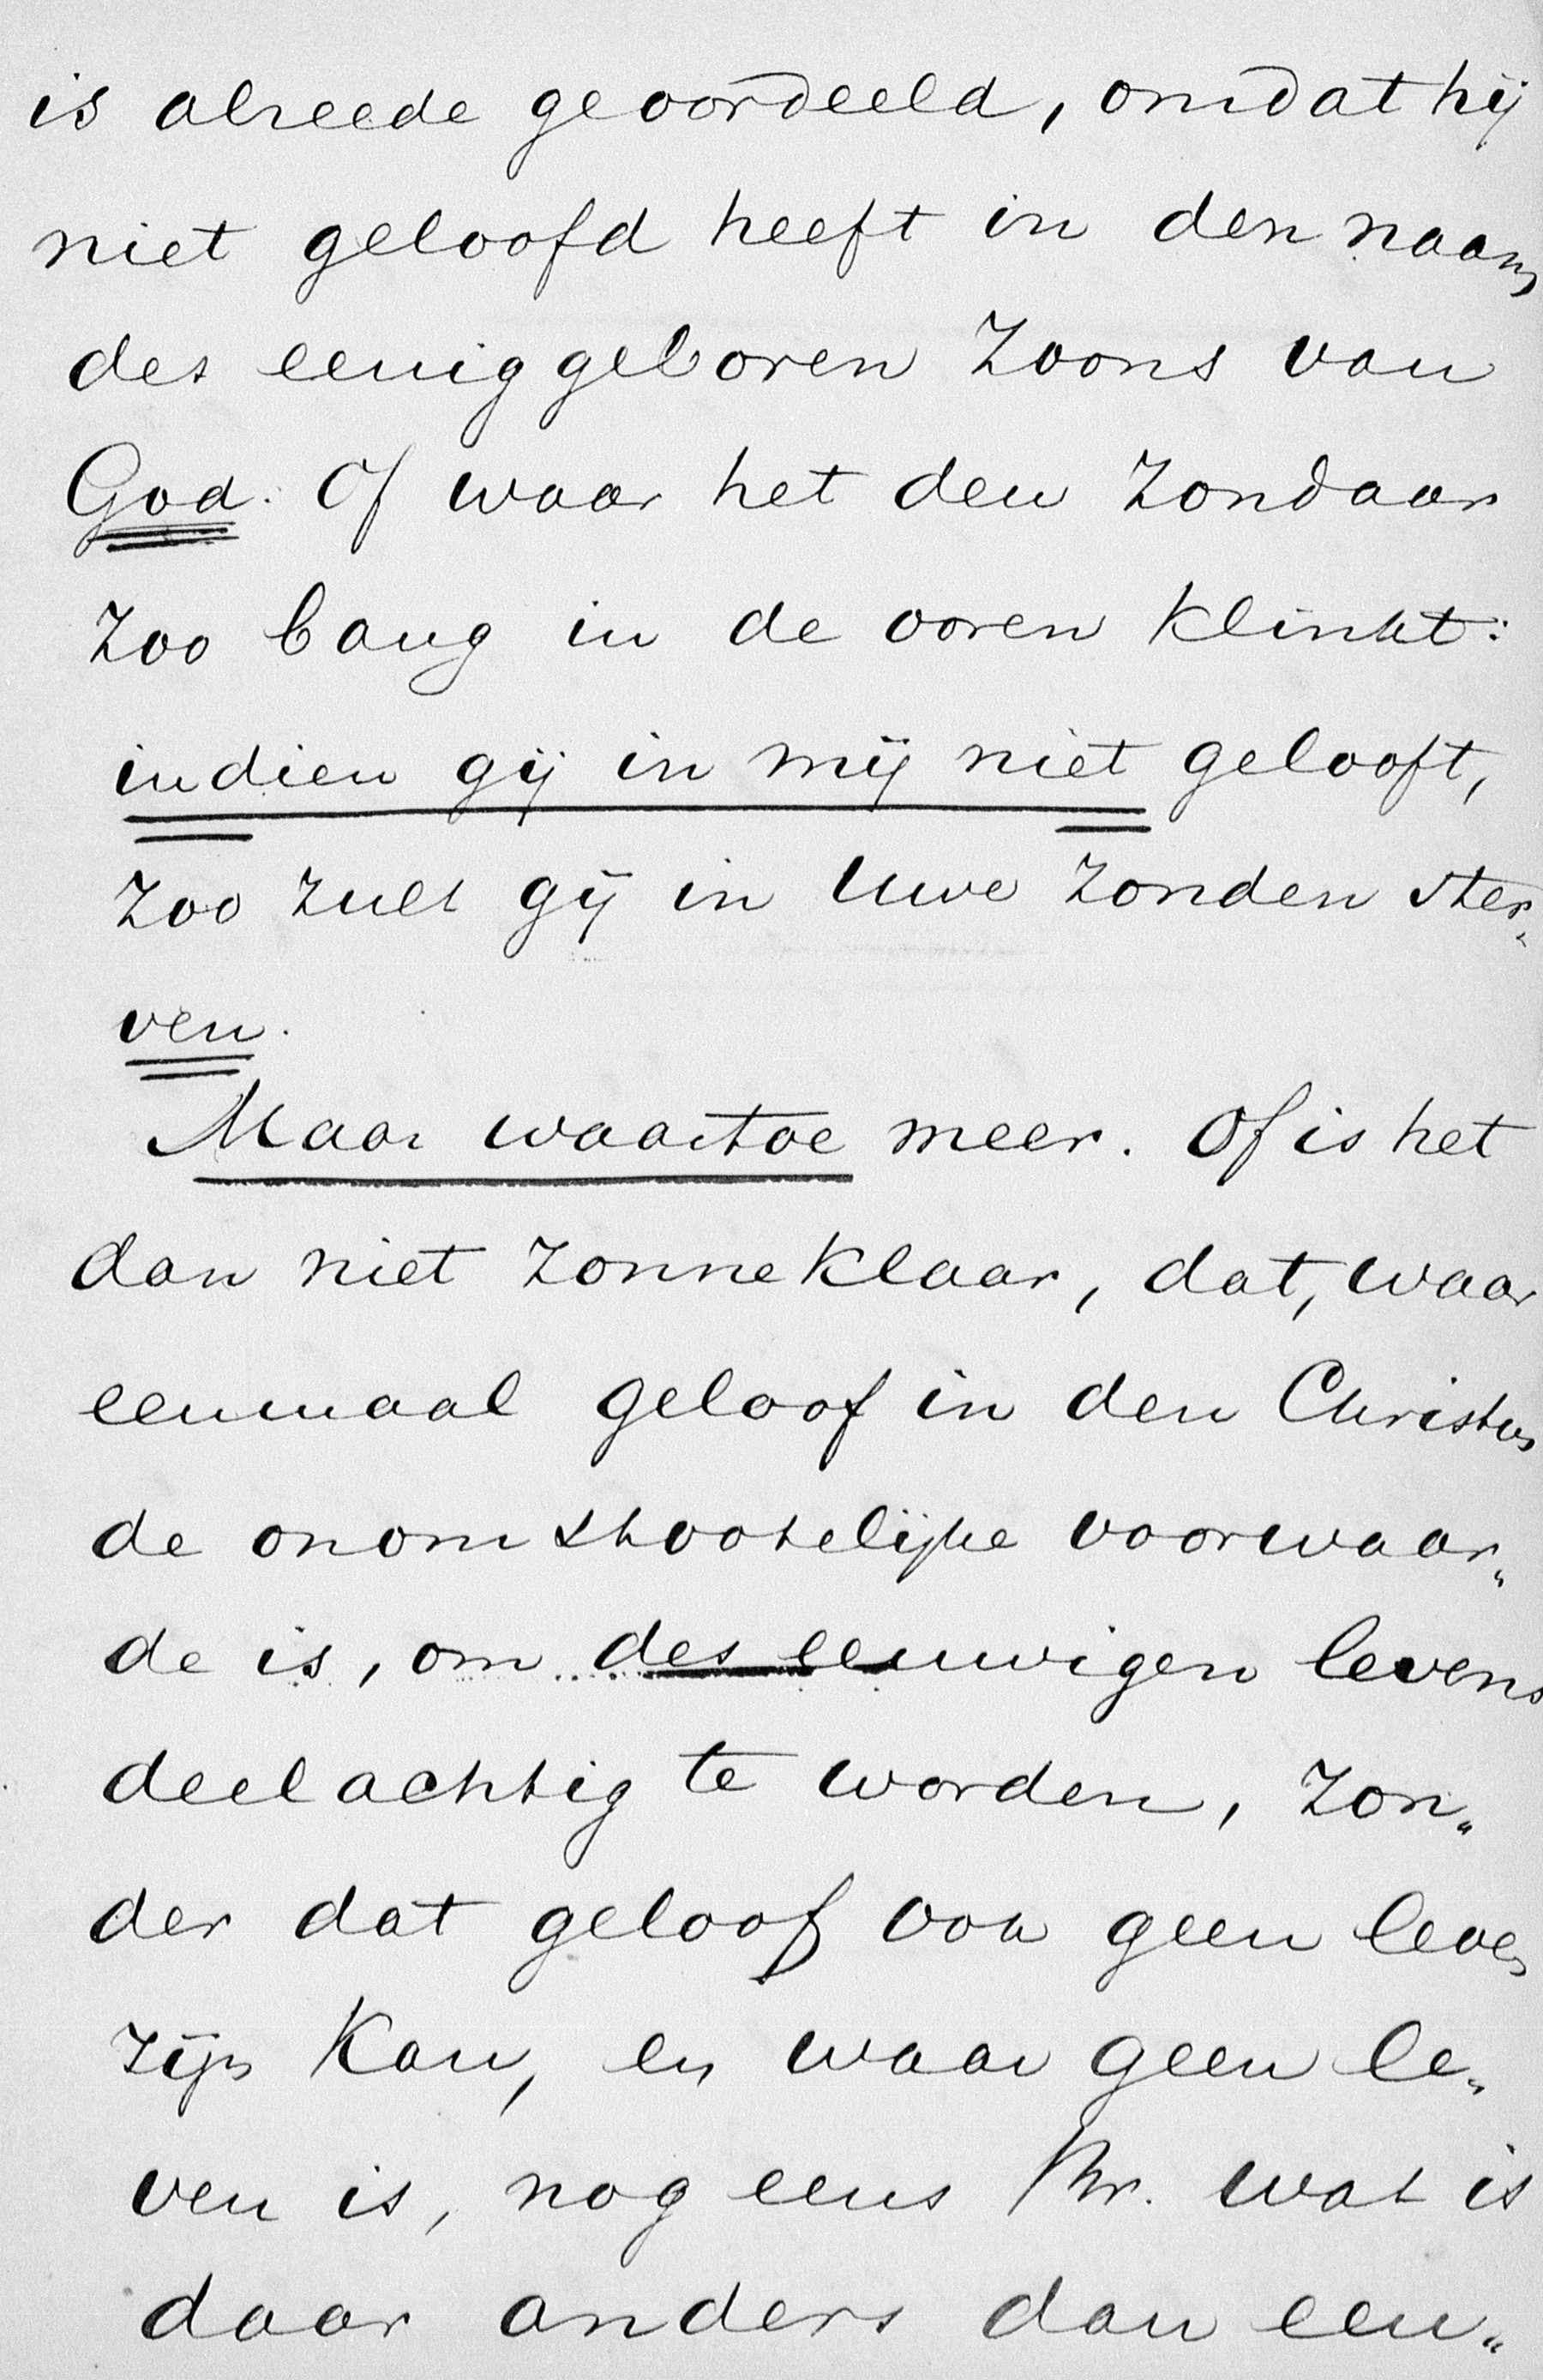 is alreede geoordeeld, omdat hij
niet geloofd heeft in den naam
des eeniggeboren Zoons van
God. Of waar het den Zondaar
Zoo bang in de ooren Klinkt:
indien gij in mij niet gelooft,
Zoo Zult gij in Uwe Zonden ster„
ven.
Maar waartoe meer. Of is het
dan niet Zonneklaar, dat, waar
eenmaal geloof in den Christus
de onomstootelijke voorwaar„
de is, om des eeuwigen levens
deelachtig te worden, Zon„
der dat geloof ook geen leven
Zijn Kan, en waar geen le„
ven is, nog eens Br. wat is
daar anders dan een„